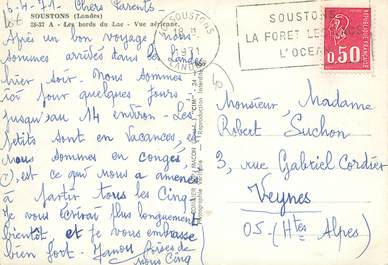 6-4-71- Chers Parents-
SOUSTONS (Landes)
28-37 A - Les bords du Lac - Vue aérienne.
Après un bon voyage, nous
sommes arrivés dans les Landes
hier soir. Nous sommes
ici pour quelques jours
jusqu'au 14 environ - Les
petits sont en vacances, et
nous sommes en congés
(?), est ce que nous a amenés
à partir tous les Cinq
Je vous écrirai plus longuement
bientôt et je vous embrasse
bien fort. Bises de
nous Cinq
SOUSTONS
18
1971
LANDES
SOUSTONS
LA FORET LES
L'OCEAN
0,50
Monsieur, Madame
Robert Suchon
3, rue Gabriel Cordier
Veynes
05-(Htes Alpes)